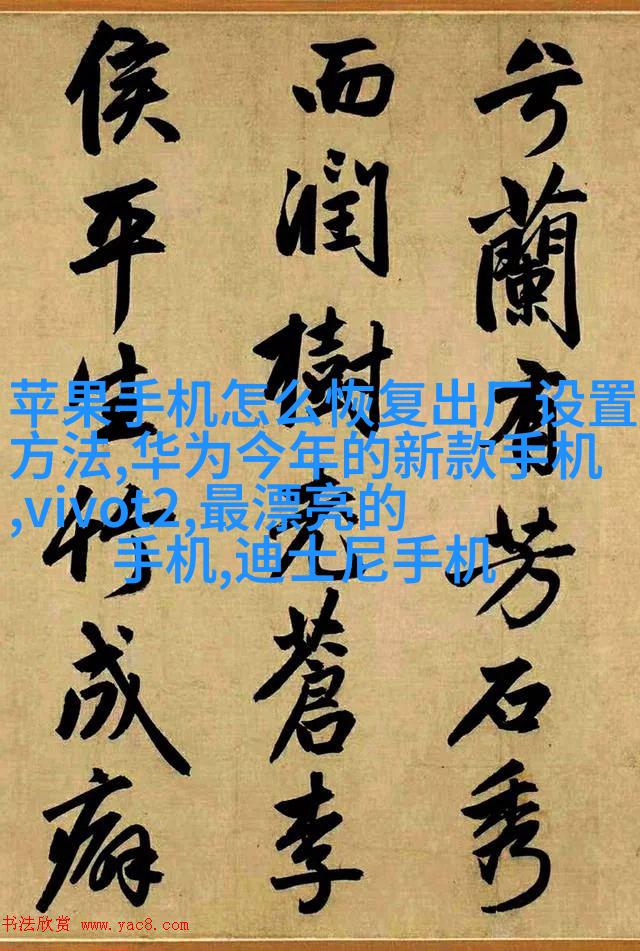 兮蘭有芳石秀
而潤樹蒼李
侯平生竹成癖
苹果手机怎么恢复出厂设置
方法,华为今年的新款手机
,vivot2,最漂亮的
手机,迪士尼手机
书法欣赏 www.yac8.com